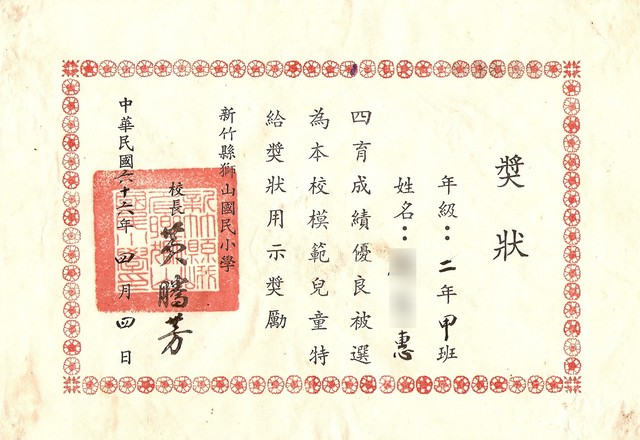 獎狀
年級：二年甲班
姓名：惠
四育成績優良被選
為本校模範兒童特
給獎狀用示獎勵
新竹縣獅山國民小學
校長 黃騰芳
中華民國六十六年四月四日